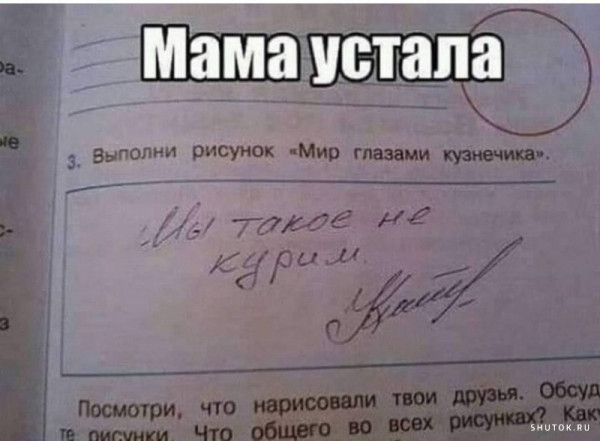 Мама устала
ра-
ые
3. Выполни рисунок «Мир глазами кузнечика».
Мы такое не
курим.
с-
з
Посмотри, что нарисовали твои друзья. Обсуд
те рисунки. Что общего во всех рисунках? Как
SHUTOK.RU